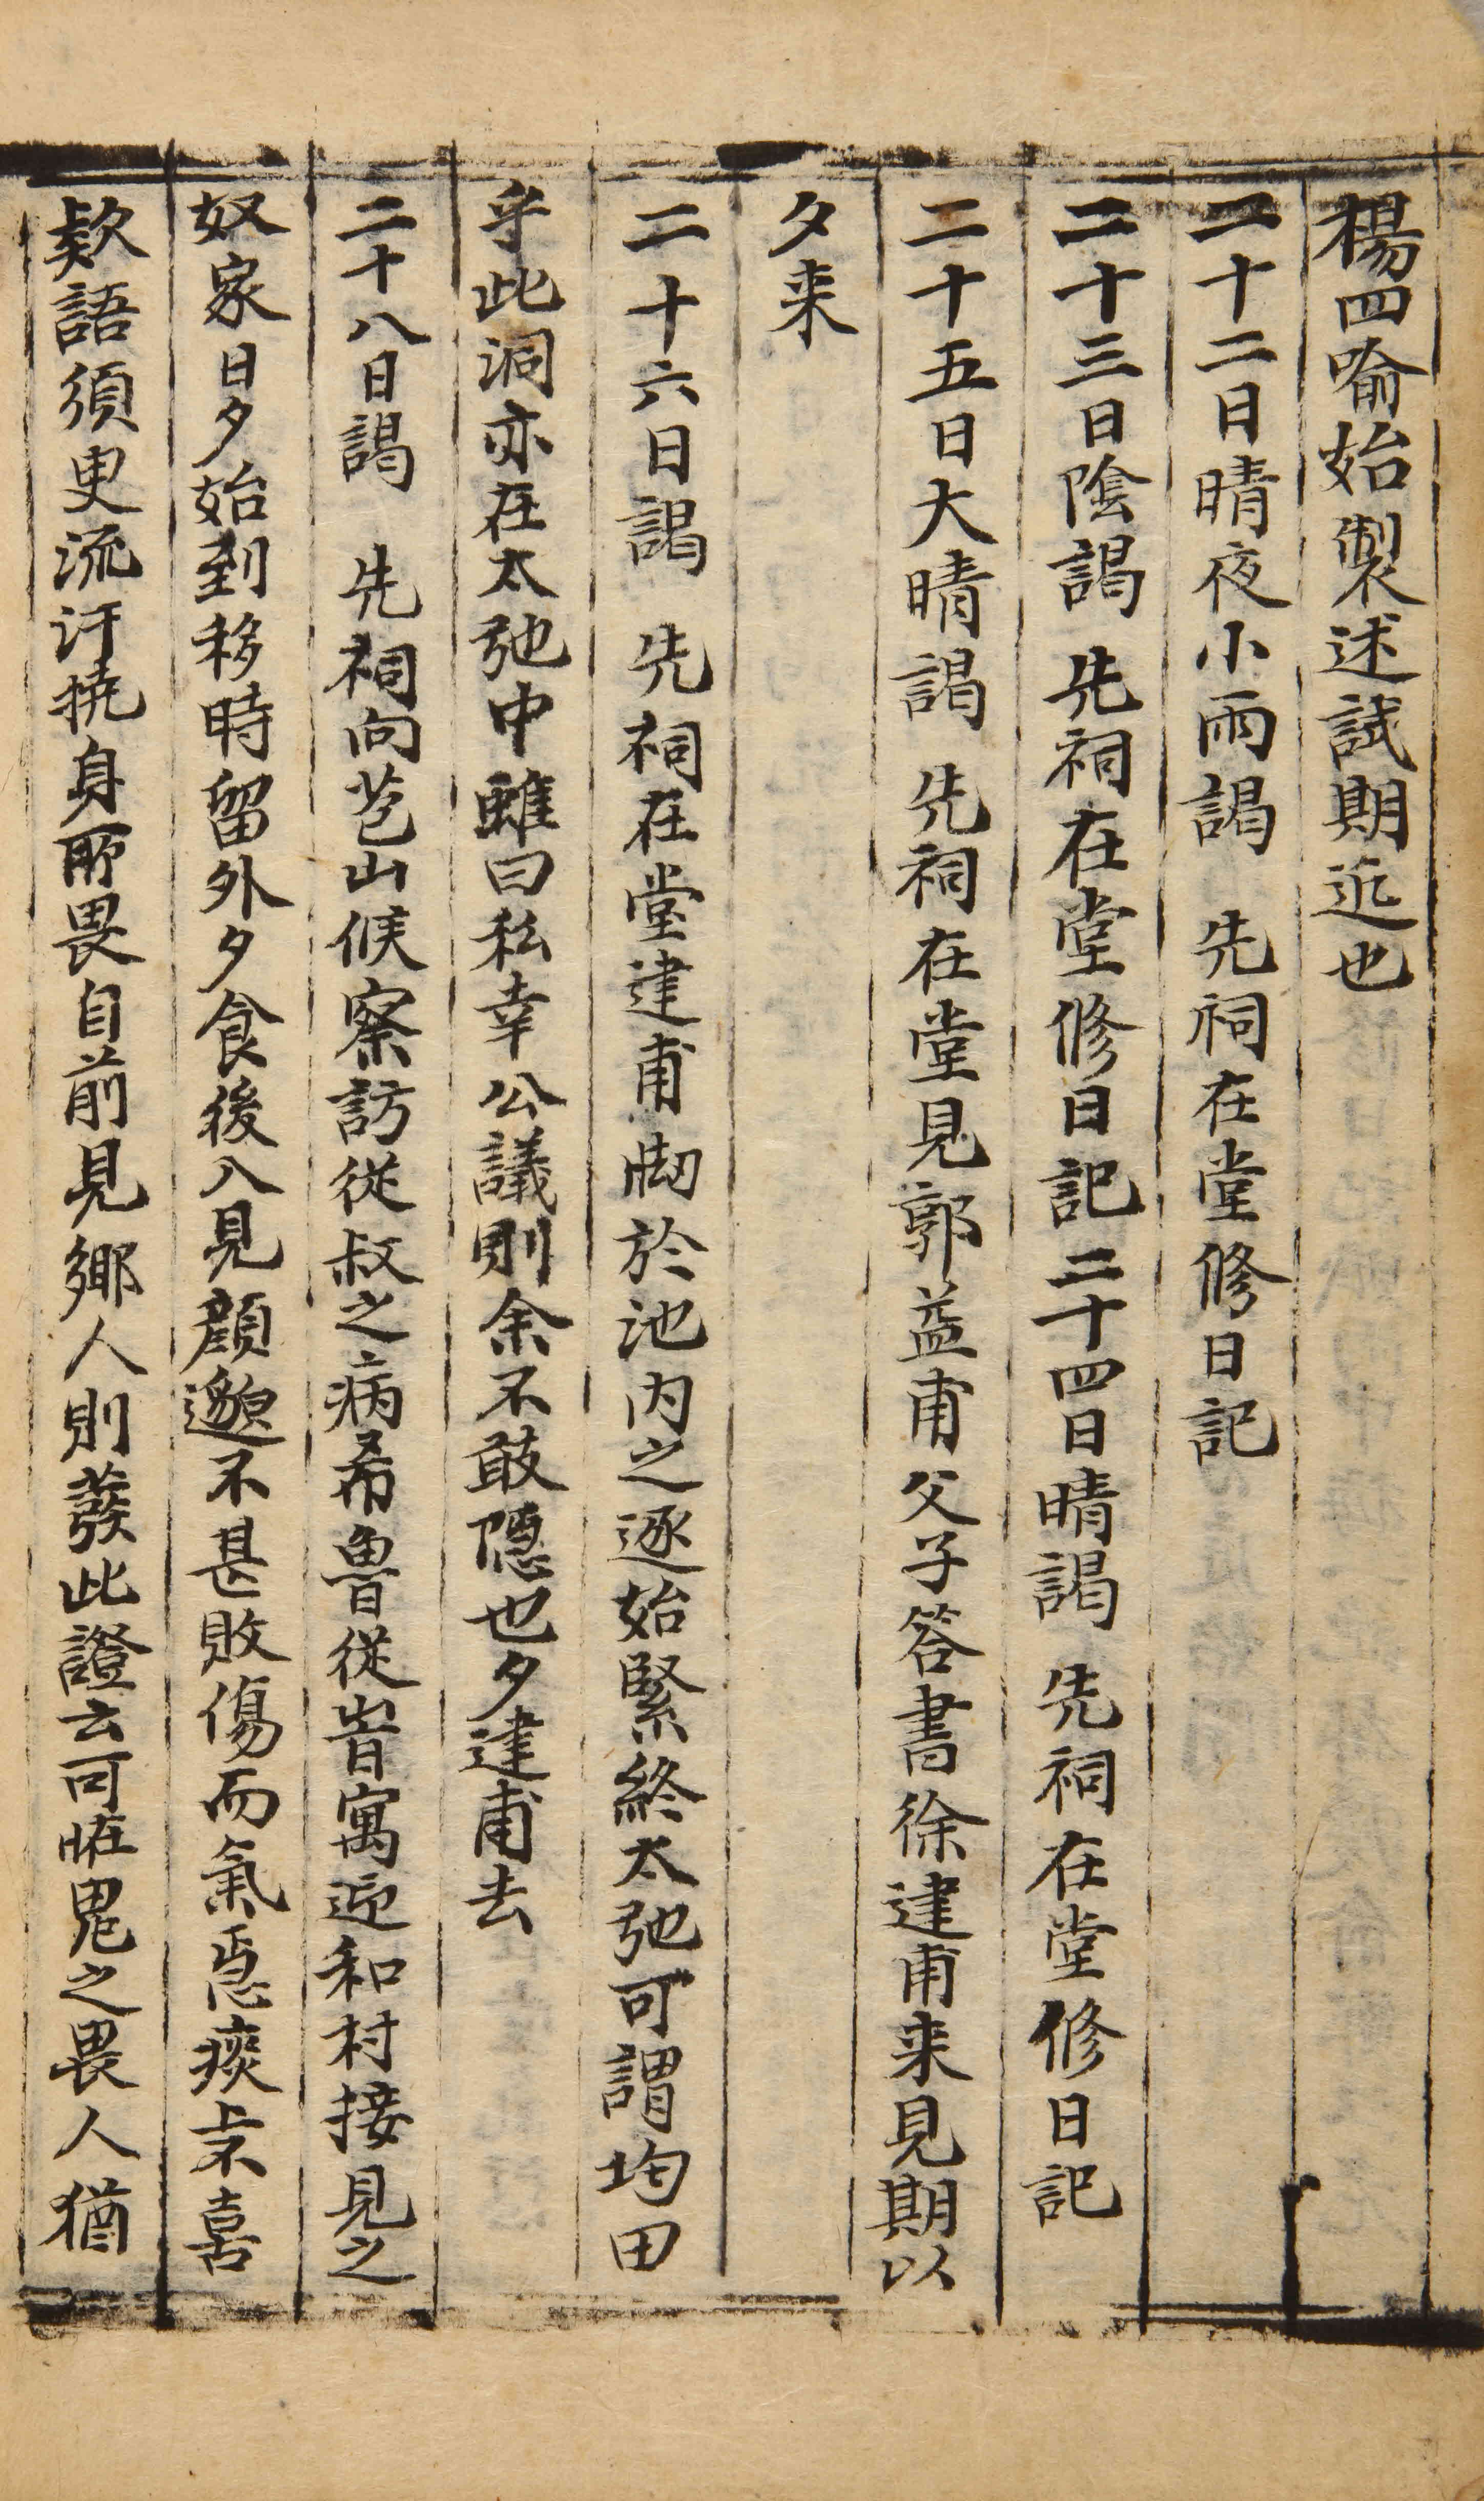 楊四喻始製述試期近也
二十二日晴夜小雨謁 先祠在堂修日記
二十三日陰謁 先祠在堂修日記二十四日晴謁 先祠在堂修日記
二十五日大晴謁 先祠在堂見郭益甫父子答書徐建甫来見期以
夕来
二十六日謁 先祠在堂建甫於池内之逐始緊終太弛可謂均田
乎此洞亦在太弛中雖曰私幸公議則余不敢隠也夕建甫去
二十八日謁 先祠向芚山候察訪従叔之病希魯従昔寓近和村接見之
奴家日夕始到移時留外夕食後入見顔邈不甚敗傷而氣恶痰宗喜
欵語須臾流汗撓身所畏自前見郷人則發此證云可怪鬼之畏人猶